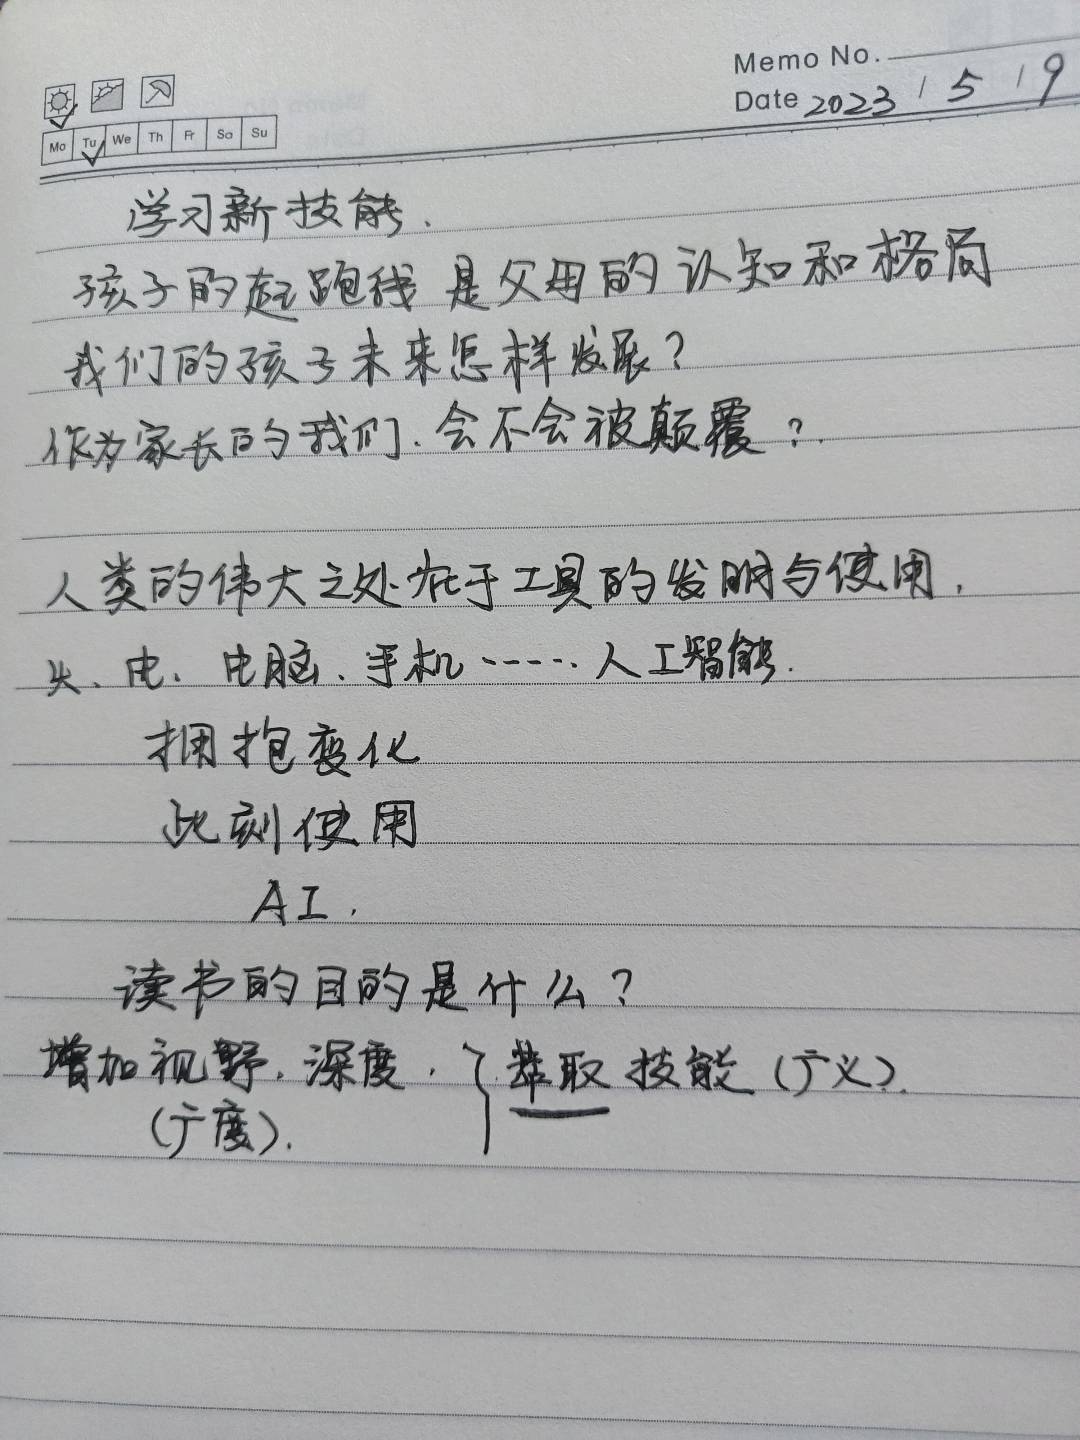 Memo No.
Date 2023 / 5 / 9
Mo Tu We Th Fr Sa Su
学习新技能.
孩子的起跑线是父母的认知和格局
我们的孩子未来怎样发展?
作为家长的我们.会不会被颠覆?.
人类的伟大之处在于工具的发明与使用,
火、电、电脑、手机……人工智能.
拥抱变化
此刻使用
AI.
读书的目的是什么?
增加视野.深度. } 萃取技能(广义).
(广度).